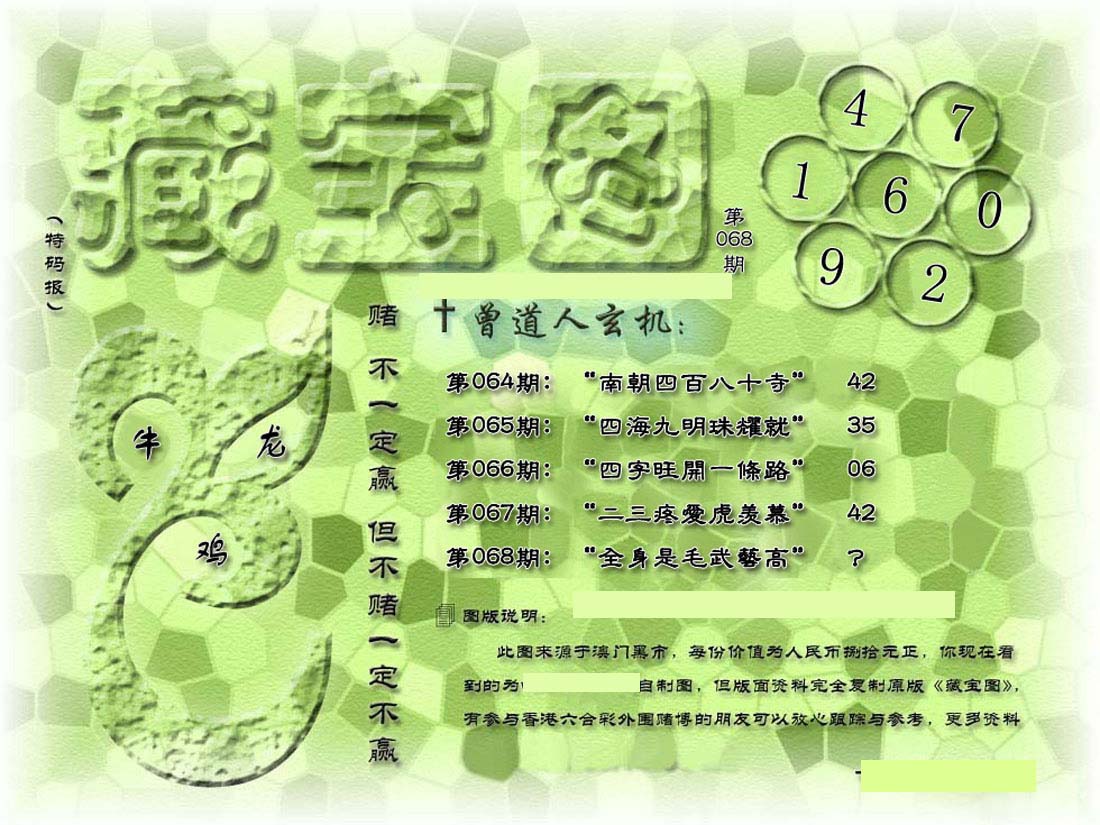 藏宝图
（特码报）
第
068
期
4
7
1
6
0
9
2
牛
龙
鸡
赌不一定赢但不赌一定不赢
曾道人玄机：
第064期： “南朝四百八十寺” 42
第065期： “四海九明珠耀就” 35
第066期： “四字旺開一條路” 06
第067期： “二三疼愛虎羡慕” 42
第068期： “全身是毛武藝高” ?
图版说明：
此图来源于澳门黑市，每份价值为人民币捌拾元正，你现在看
到的为 自制图，但版面资料完全复制原版《藏宝图》，
有参与香港六合彩外围赌博的朋友可以放心跟踪与参考，更多资料